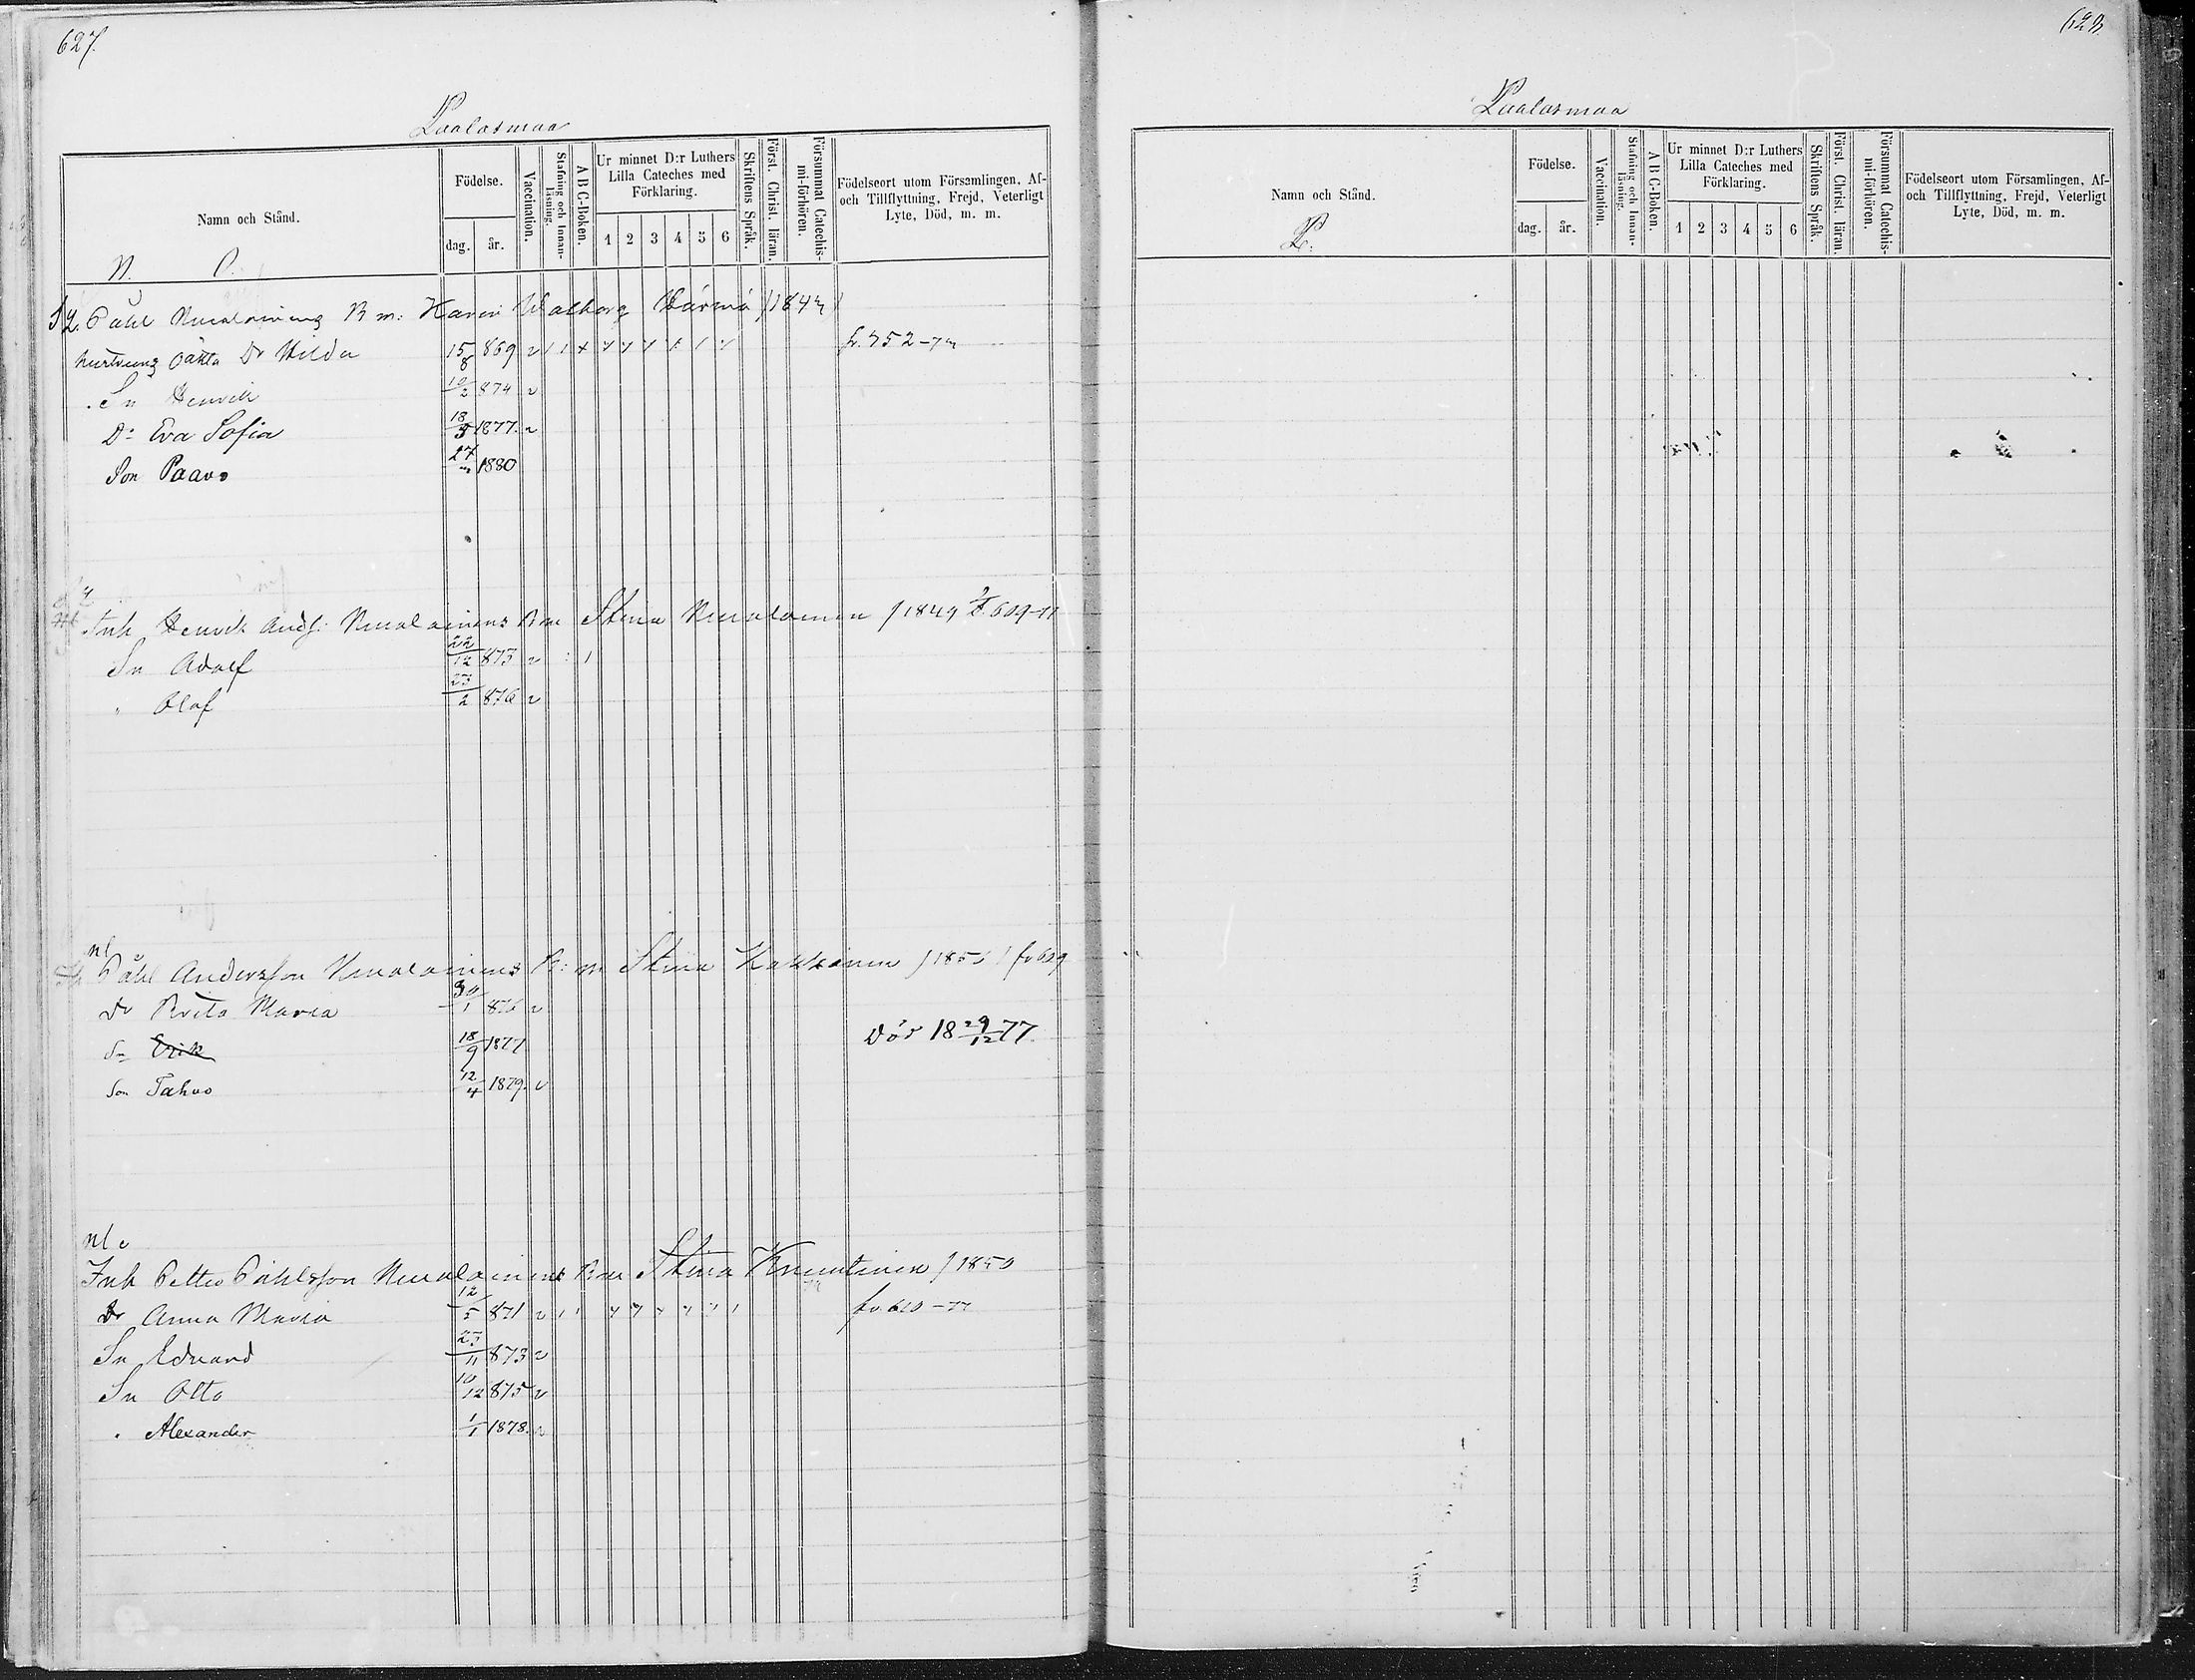 627.
Laalasmaa
Namn och Stånd.
Födelse.
dag.
år.
Vaccination.
Stafning och Innan-läsning.
A B C-Boken.
Ur minnet D:r Luthers Lilla Cateches med Förklaring.
1 2 3 4 5 6
Skriftens Språk.
Först. Christ. läran.
Försummat Catechis-mi-förhören.
Födelseort utom Församlingen, Af- och Tillflyttning, Frejd, Veterligt Lyte, Död, m. m.
N. O.
Påhl Nuralainens B m: Karin Walborg 1843
Dr Hilda 15/8 869 v fr. 752-73
Sn Henrik 10/2 874 v
Dr Eva Sofia 18/5 1877. v
Son Paavo 27 1880
Inh Henrik Andss: Nuralainens B m Stina Nuralainen 1849 fr. 609-77
Sn Adolf 22/12 873 v
" Olaf 23/2 876 v
nl
Påhl Andersson Nuralainens B: m Stina Kakkonen fr 609
Dr Brita Maria 30/1 876 v
Sn Erik 18/9 1877 Död 18 29/12 77.
Son Tahvo 12/4 1879. v
nl
Inh Petter Påhlsson Nuralainens B m Stina Knuutinen 1850
Dr Anna Maria 12/5 871 v fr. 610-77
Sn Eduard 23/11 873 v
Sn Otto 10/12 875 v
" Alexander 1/1 1878. v
628.
Laalasmaa
Namn och Stånd.
P.
Födelse.
dag.
år.
Vaccination.
Stafning och Innan-läsning.
A B C-Boken.
Ur minnet D:r Luthers Lilla Cateches med Förklaring.
1 2 3 4 5 6
Skriftens Språk.
Först. Christ. läran.
Försummat Catechis-mi-förhören.
Födelseort utom Församlingen, Af- och Tillflyttning, Frejd, Veterligt Lyte, Död, m. m.